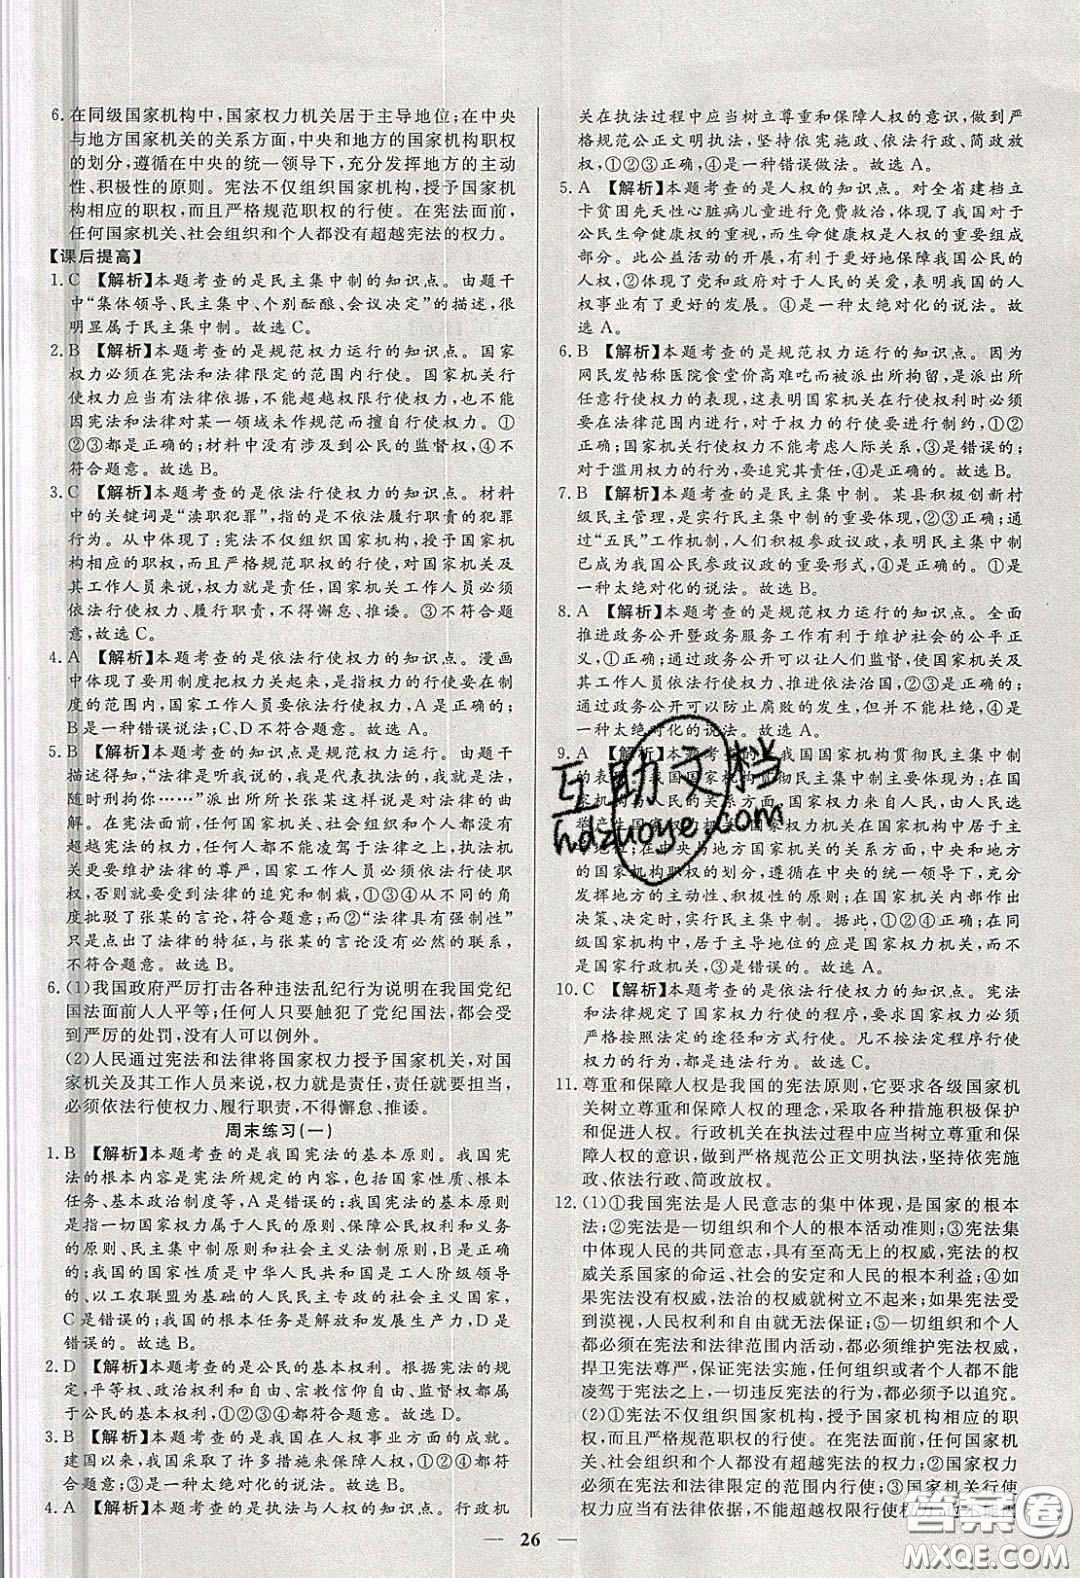 6. 在同级国家机构中,国家权力机关居于主导地位;在中央
与地方国家机关的关系方面,中央和地方的国家机构职权
的划分,遵循在中央的统一领导下,充分发挥地方的主动
性、积极性的原则。宪法不仅组织国家机构,授予国家机
构相应的职权,而且严格规范职权的行使。在宪法面前,
任何国家机关、社会组织和个人都没有超越宪法的权力。
【课后提高】
1. C 【解析】本题考查的是民主集中制的知识点。由题干
中“集体领导、民主集中、个别酝酿、会议决定”的描述,很
明显属于民主集中制。故选C。
2. B 【解析】本题考查的是规范权力运行的知识点。国家
权力必须在宪法和法律限定的范围内行使。国家机关行
使权力应当有法律依据,不能超越权限行使权力,也不能
因宪法和法律对某一领域未作规范而擅自行使权力。①
②③都是正确的;材料中没有涉及到公民的监督权,④不
符合题意。故选B。
3. C 【解析】本题考查的是依法行使权力的知识点。材料
中的关键词是“渎职犯罪”,指的是不依法行使职权的犯罪
行为。从中体现了:宪法不仅组织国家机构,授予国家机
构相应的职权,而且严格规范权力行使,对国家机关及其
工作人员来说,权力就是责任;国家机关工作人员必须
依法行使权力、履行职责,不得懈怠、推诿。③不符合题
意,故选C。
4. A 【解析】本题考查的是依法行使权力的知识点。漫画
中体现了要用制度把权力关起来,是指权力的行使要在制
度的范围内,国家工作人员要依法行使权力,A是正确的;
B是一种错误说法;C、D不符合题意。故选A。
5. B 【解析】本题考查的知识点是规范权力运行。由题干
描述得知,“法律是听我说的,我是代表执法的,我就是法,
随时刑拘你……”派出所所长张某这样说是对法律的曲
解。在宪法面前,任何国家机关、社会组织和个人都没有
超越宪法的权力,任何人不能凌驾于法律之上,执法机关
更要维护法律的尊严,严格在法律的范围之内行使职
权,否则就要受到法律的追究和制裁,①③④从不同的角
度批驳了张某的言论,符合题意;而②“法律具有强制性”
只是点出了法律的特征,与张某的言论没有必然的联系,
不符合题意。故选B。
6. (1)我国政府严厉打击各种违法乱纪行为说明在我国党纪
国法面前人人平等;任何人只要触犯了党纪国法,都会受
到严厉的处罚,没有人可以例外。
(2)人民通过宪法和法律将国家权力授予国家机关,对国
家机关及其工作人员来说,权力就是责任,责任就要担当,
必须依法行使权力、履行职责,不得懈怠、推诿。
周末练习(一)
1. B 【解析】本题考查的是我国宪法的基本原则。我国宪
法的根本内容是宪法所规定的内容,包括国家性质、根本
任务、基本政治制度等,A是错误的;我国宪法的基本原则
是指一切国家权力属于人民的原则、保障公民权利和义务
的原则、民主集中制原则和社会主义法制原则,B是正确
的;我国的国家性质是中华人民共和国是工人阶级领导
的、以工农联盟为基础的人民民主专政的社会主义国家,
C是错误的;我国的根本任务是解放和发展生产力,D是
错误的。故选B。
2. D 【解析】本题考查的是公民的基本权利。根据宪法的规
定,平等权、政治权利和自由、宗教信仰自由、监督权都属
于我国公民的基本权利,①②③④都符合题意。故选D。
3. B 【解析】本题考查的是我国在人权事业方面的成就。
建国以来,我国采取了许多措施来保障人权,①②④符合
题意;③是一种太绝对化的说法。故选B。
4. A 【解析】本题考查的是执法与人权的知识点。行政机
关在执法过程中应当树立尊重和保障人权的意识,做到严
格规范公正文明执法,坚持依宪施政、依法行政、简政放
权,①②③正确,④是一种错误做法。故选A。
5. A 【解析】本题考查的是人权的知识点。对全省建档立
卡贫困先天性心脏病儿童进行免费救治,体现了我国对于
公民生命健康权的重视,而生命健康权是人权的重要组成
部分。此公益活动的开展,有利于更好地保障我国公民的
人权,②体现了党和政府对于人民的关爱,表明我国的人
权事业有了更好的发展。④是一种太绝对化的说法。故
选A。
6. B 【解析】本题考查的是规范权力运行的知识点。因为
网民发帖称医院食堂价高难吃而被派出所拘留,是派出所
任意行使权力的表现,这表明国家机关在行使权利时必须
要在法律范围内进行,对于权力的行使要进行制约,①②
正确;国家机关行使权力不能考虑人际关系,③是错误的;
对于滥用权力的行为,要追究其责任,④正确。故选B。
7. B 【解析】本题考查的是民主集中制。某县积极创新村
级民主管理,是实行民主集中制的重要体现,②③正确;通
过“五民”工作机制,人们积极参政议政,表明民主集中制
已成为我国公民参政议政的重要形式,④正确;①
是一种太绝对化的说法。故选B。
8. A 【解析】本题考查的是规范权力运行的知识点。全面
推进政务公开暨政务服务工作有利于维护社会的公平正
义,①正确;通过政务公开可以让人们监督,使国家机关及
其工作人员依法行使权力、推进依法治国,②正确;
通过政务公开可以防止腐败的发生,但并不能杜绝,④
是一种太绝对化的说法。故选A。
9. A 【解析】本题考查的是我国国家机构贯彻民主集中制
的表现。我国国家机构贯彻民主集中制主要体现为:在国
家机构与人民的关系方面,国家权力来自人民,由人民选
举产生国家权力机关;在同级国家机构中,国家权力机关居于主
导地位;在中央与地方国家机关的关系方面,中央和地方
的国家机构职权的划分,遵循在中央的统一领导下,充分
发挥地方的主动性、积极性的原则;在国家机关内部作出
决策、决定时,实行民主集中制。据此,①②④正确;在同
级国家机构中,居于主导地位的应是国家权力机关,而不
是国家行政机关,③是错误的。故选A。
10. C 【解析】本题考查的是依法行使权力的知识点。宪法
和法律规定了国家权力行使的程序,要求国家权力机关必须
严格按照法定的途径和方式行使。凡不按法定程序行
使权力的行为,都是违法行为。故选C。
11. 尊重和保障人权是我国的宪法原则,它要求各级国家机
关树立尊重和保障人权的理念,采取各种措施积极保护
和促进人权。行政机关在执法过程中应当树立尊重和保
障人权的意识,做到严格规范公正文明执法,坚持依宪施
政、依法行政、简政放权。
12. (1)①我国宪法是人民意志的集中体现,是国家的根本
法;②宪法是一切组织和个人的根本活动准则;③宪法集
中体现人民的共同意志,具有至高无上的权威,宪法的权
威关系国家的命运、社会的安定和人民的根本利益;④如
果宪法没有权威,法治的权威就树立不起来;如果宪法受
到漠视,人民权利和自由就无法保证;⑤一切组织和个人
都必须在宪法和法律范围内活动,都必须维护宪法权威,
捍卫宪法尊严,保证宪法实施,任何组织或者个人都不能
凌驾于宪法之上,一切违反宪法的行为,都必须予以追究。
(2)①宪法不仅组织国家机构,授予国家机构相应的职
权,而且严格规范职权的行使。在宪法面前,任何国家机
关、社会组织和个人都没有超越宪法的权力;②国家权力
必须在宪法和法律限定的范围内行使;③国家机关行使
权力应当有法律依据,不能超越权限行使权力
26
互助文档
hdzuoye.com
答案圈
MXQE.COM